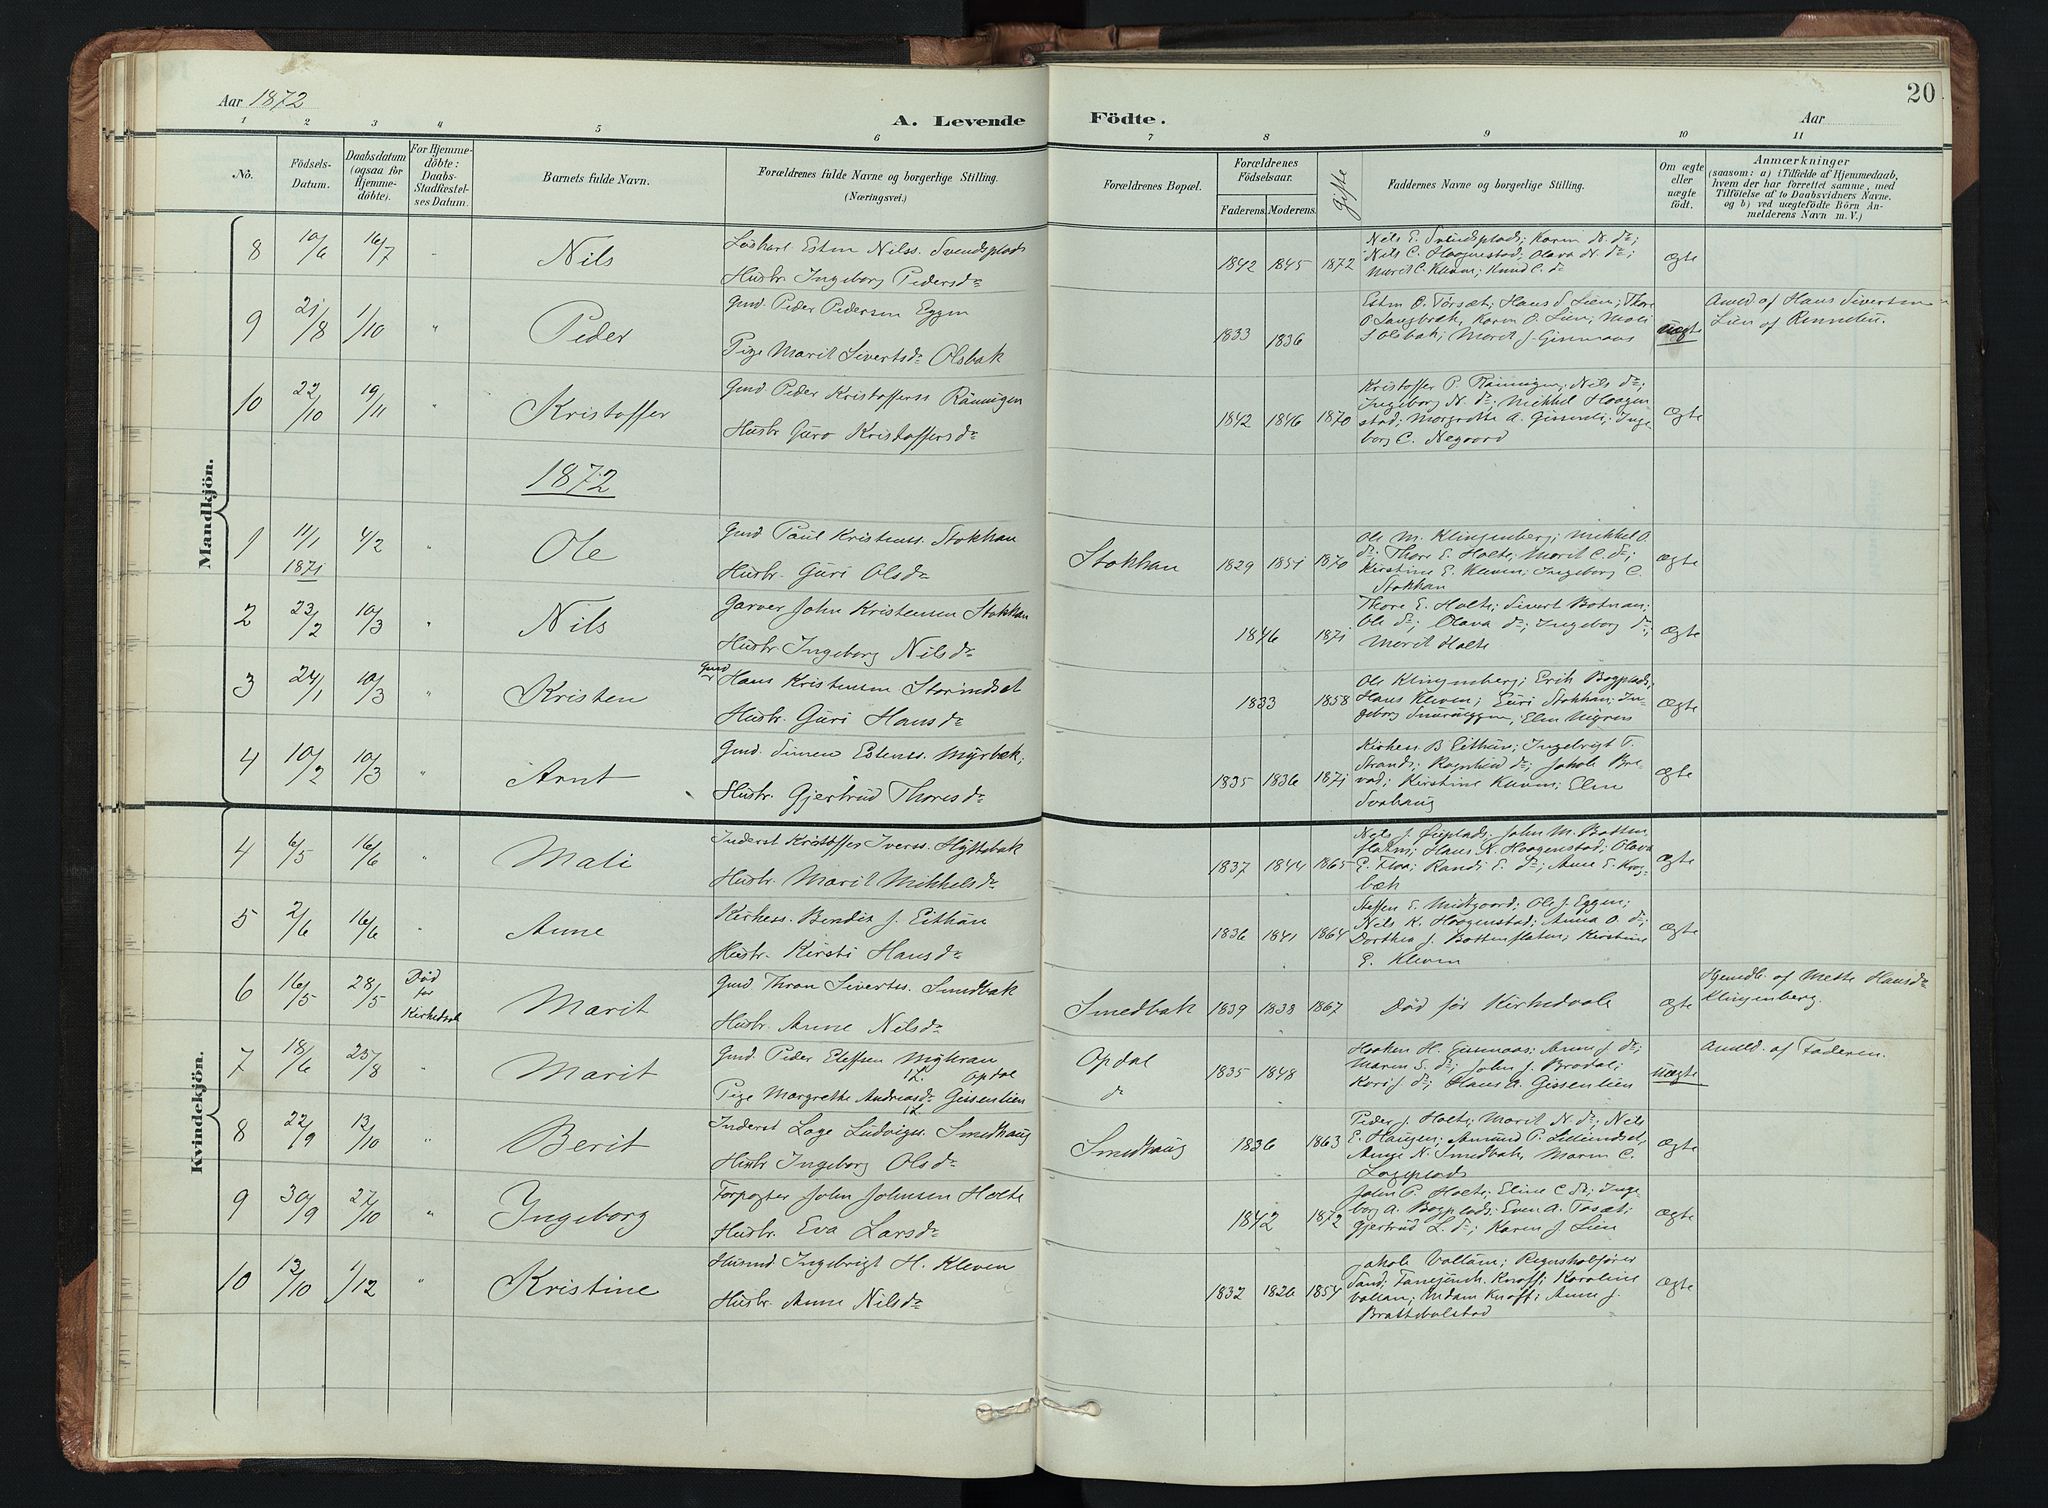 Aar 1872
A. Levende Födte.
Aar
20
1 2 3 4 5 6 7 8 9 10 11
No.
Födsels-Datum.
Daabsdatum (ogsaa for Hjemme-döbte).
For Hjemme-döbte: Daabs-Stadfæstel-ses Datum.
Barnets fulde Navn.
Forældrenes fulde Navne og borgerlige Stilling. (Næringsvei.)
Forældrenes Bopæl.
Forældrenes Födselsaar.
Faderens. Moderens.
Gifte
Faddernes Navne og borgerlige Stilling.
Om ægte eller uægte födt.
Anmærkninger (saasom: a) i Tilfælde af Hjemmedaab, hvem der har forrettet samme, med Tilföielse af to Daabsvidners Navne, og b) ved uægtefödte Börn An-melderens Navn m. V.)
Mandkjön.
8 10/6 16/7 Nils
Esten Nilss. Svendsplads
Husbr Ingeborg Pedersdr
1842 1845 1872
Nils E. Svendsplads; Karen N. do;
Nils C. Haagenstad; Olava N. do;
Marit C. Kleven; Knud C. do
Ægte
9 21/8 1/10 " Peder
Gmd. Peder Pedersen Eggen
Pige Marit Sivertsdr Olsbak
1833 1836
Esten O. Torsæt; Hans S. Lien; Thore
O. Langbræk, Karen O. Lien; Mali
S. Olsbak; Marit J. Gismaas
uægte
Anmld af Hans Sivertsen
Lien af Rennebu.
10 22/10 19/11 " Kristoffer
Gmd. Peder Kristofferss Rönningen
Husbr Guro Kristoffersdr
1842 1846 1870
Kristoffer P. Rönningen; Nils do;
Ingeborg N. do; Mikkel Haagen
stad; Margrethe A. Inge
borg C. Negaard
Ægte
1872
1 11/1 1871 4/2 " Ole
Gmd Paul Kristenss. Stokhan
Husbr. Guri Olsdr
Stokhan 1829 1851 1870
Ole M. Klingenberg; Mikkel O.
do; Thore E. Holte; Marit C. do;
Kirstine E. Kleven; Ingeborg C.
Stokhan
ægte
2 23/2 10/3 " Nils
Garver John Kristensen Stokhan
Husbr Ingeborg Nilsdr
1846 1871
Thore E. Holte; Sivert Botnan;
Ole do; Olava do; Ingeborg do;
Marit Holte
Ægte
3 24/1 10/3 " Kristen
Gmd Hans Kristensen Storindset
Husbr. Guri Hansdr
1833 1858
Ole Klingenberg; Erik Bogplads;
Hans Kleven; Guri Stokhan; In-
geborg Elen
Ægte
4 10/2 10/3 " Arnt
Gmd. Simen Estenss. Myrbæk.
Husbr. Gjertrud Thoresdr
1835 1836 1871
Kirkess B Eithun; Ingebrigt T.
Strand; Ragnhild do; Jakob Bre-
vad; Kirstine Kleven; Elen
Svahaug
Ægte
Kvindekjön.
4 6/5 16/6 " Mali
Inderst Kristoffer Iverss. Hyttebak
Husbr. Marit Mikkelsdr
1837 1844 1865
Nils J. Øieplads; John M. Botten
flaten; Hans K. Haagenstad; Olava
E. Floa; Randi E. do; Anne E. Krog-
bæk
Ægte
5 2/6 16/6 " Anne
Kirkess. Bendix J. Eithun
Husbr. Kirsti Hansdr
1836 1841 1864
Steffen E. Midtgaard; Ole J. Eggen;
Nils K. Haagenstad; Anna O. do;
Dorthea J. Bottenflaten; Kirstine
E. Kleven
Ægte
6 16/5 28/5 Död for Kirkedaab Marit
Gmd Thron Sivertss. Smedbak
Husbr. Anne Nilsdr
Smedbak 1839 1838 1867
Död för Kirkedaab
Ægte
Hjemdb. af Mette Hansdr
Klingenberg.
7 18/6 25/8 " Marit
Gmd. Peder Eleffsen Myhran
Opdal
Pige Margrethe Andreasdr Gissenlien
Opdal
do
1835 1848
Haaken H. Gismaas; Anne J. do;
Maren S. do; John J. Brodal;
Kari J. do; Hans A. Gissenlien
uægte
Anmld. af Faderen.
8 22/9 13/10 " Berit
Inderst Lage Ludvigss. Smedhaug
Husbr Ingeborg Olsdr
Smedhaug 1836 1863
Peder J. Holte; Marit N. do; Nils
E. Haugen; Amund P.
Anne N. Smedbak, Maren C.
Lageplads
Ægte
9 30/9 27/10 " Ingeborg
Forpagter John Johnsen Holte
Husbr. Eva Larsdr
1842 1872
John P. Holte; Eline C. do; Inge-
borg A. Bogplads; Even A. Tosæt;
Gjertrud L. do; Karen J. Lien
Ægte
10 13/10 1/12 " Kristine
Husmd Ingebrigt H. Kleven
Husbr. Anne Nilsdr
1832 1826 1854
Jakob Vollan; Regnskabsförer
Sand; Knoff; Karoline
Vollan; Madam Knoff; Anne J.
Brattebolstad
Ægte